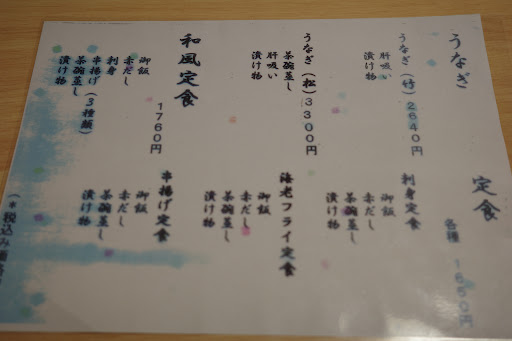 うなぎ
うなぎ（竹）２６４０円
肝吸い
漬け物
うなぎ（松）３３００円
茶碗蒸し
肝吸い
漬け物
和風定食
１７６０円
御飯
赤だし
刺身
串揚げ（３種類）
茶碗蒸し
漬け物
定食
各種　１６５０円
刺身定食
御飯
赤だし
茶碗蒸し
漬け物
海老フライ定食
御飯
赤だし
茶碗蒸し
漬け物
串揚げ定食
御飯
赤だし
茶碗蒸し
漬け物
税込み価格